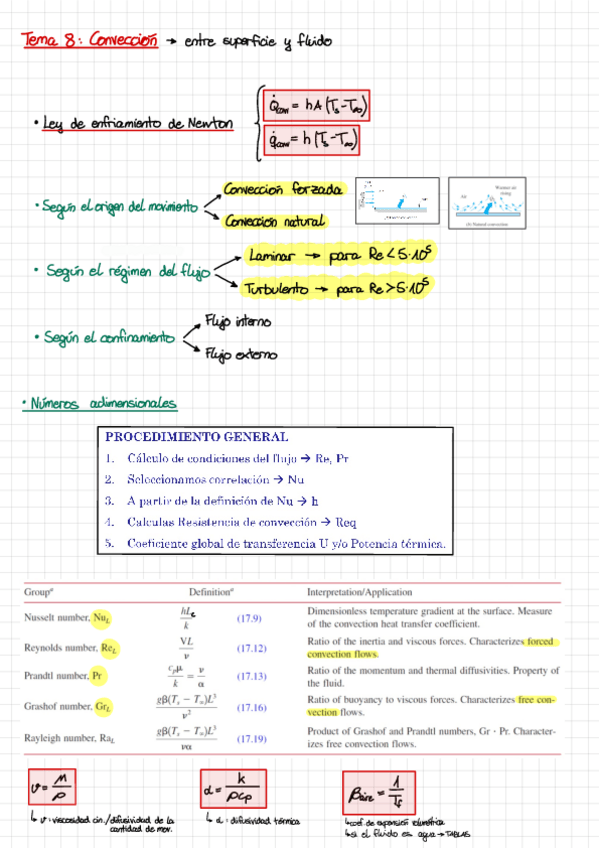 Tema 8: Convección → entre superficie y fluido
• Ley de enfriamiento de Newton
Q̇conv = hA(Ts-T∞)
q̇conv = h(Ts-T∞)
• Según el origen del movimiento
Convección forzada
Convección natural
Warmer air
rising
(b) Natural convection
• Según el régimen del flujo
Laminar → para Re < 5·10⁵
Turbulento → para Re > 5·10⁵
• Según el confinamiento
Flujo interno
Flujo externo
• Números adimensionales
PROCEDIMIENTO GENERAL
1. Cálculo de condiciones del flujo → Re, Pr
2. Seleccionamos correlación → Nu
3. A partir de la definición de Nu → h
4. Calculas Resistencia de convección → Req
5. Coeficiente global de transferencia U y/o Potencia térmica.
Groupᵃ Definitionᵃ Interpretation/Application
Nusselt number, Nu_L hLc/k (17.9) Dimensionless temperature gradient at the surface. Measure
of the convection heat transfer coefficient.
Reynolds number, Re_L VL/ν (17.12) Ratio of the inertia and viscous forces. Characterizes forced
convection flows.
Prandtl number, Pr cpμ/k = ν/α (17.13) Ratio of the momentum and thermal diffusivities. Property of
the fluid.
Grashof number, Gr_L gβ(Ts − T∞)L³/ν² (17.16) Ratio of buoyancy to viscous forces. Characterizes free con-
vection flows.
Rayleigh number, Ra_L gβ(Ts − T∞)L³/να (17.19) Product of Grashof and Prandtl numbers, Gr · Pr. Character-
izes free convection flows.
ν = μ/ρ
α = k/ρcp
βaire = 1/Tf
↳ ν: viscosidad cin./difusividad de la
cantidad de mov.
↳ α: difusividad térmica
↳ coef. de expansión volumétrica
↳ si el fluido es agua → TABLAS